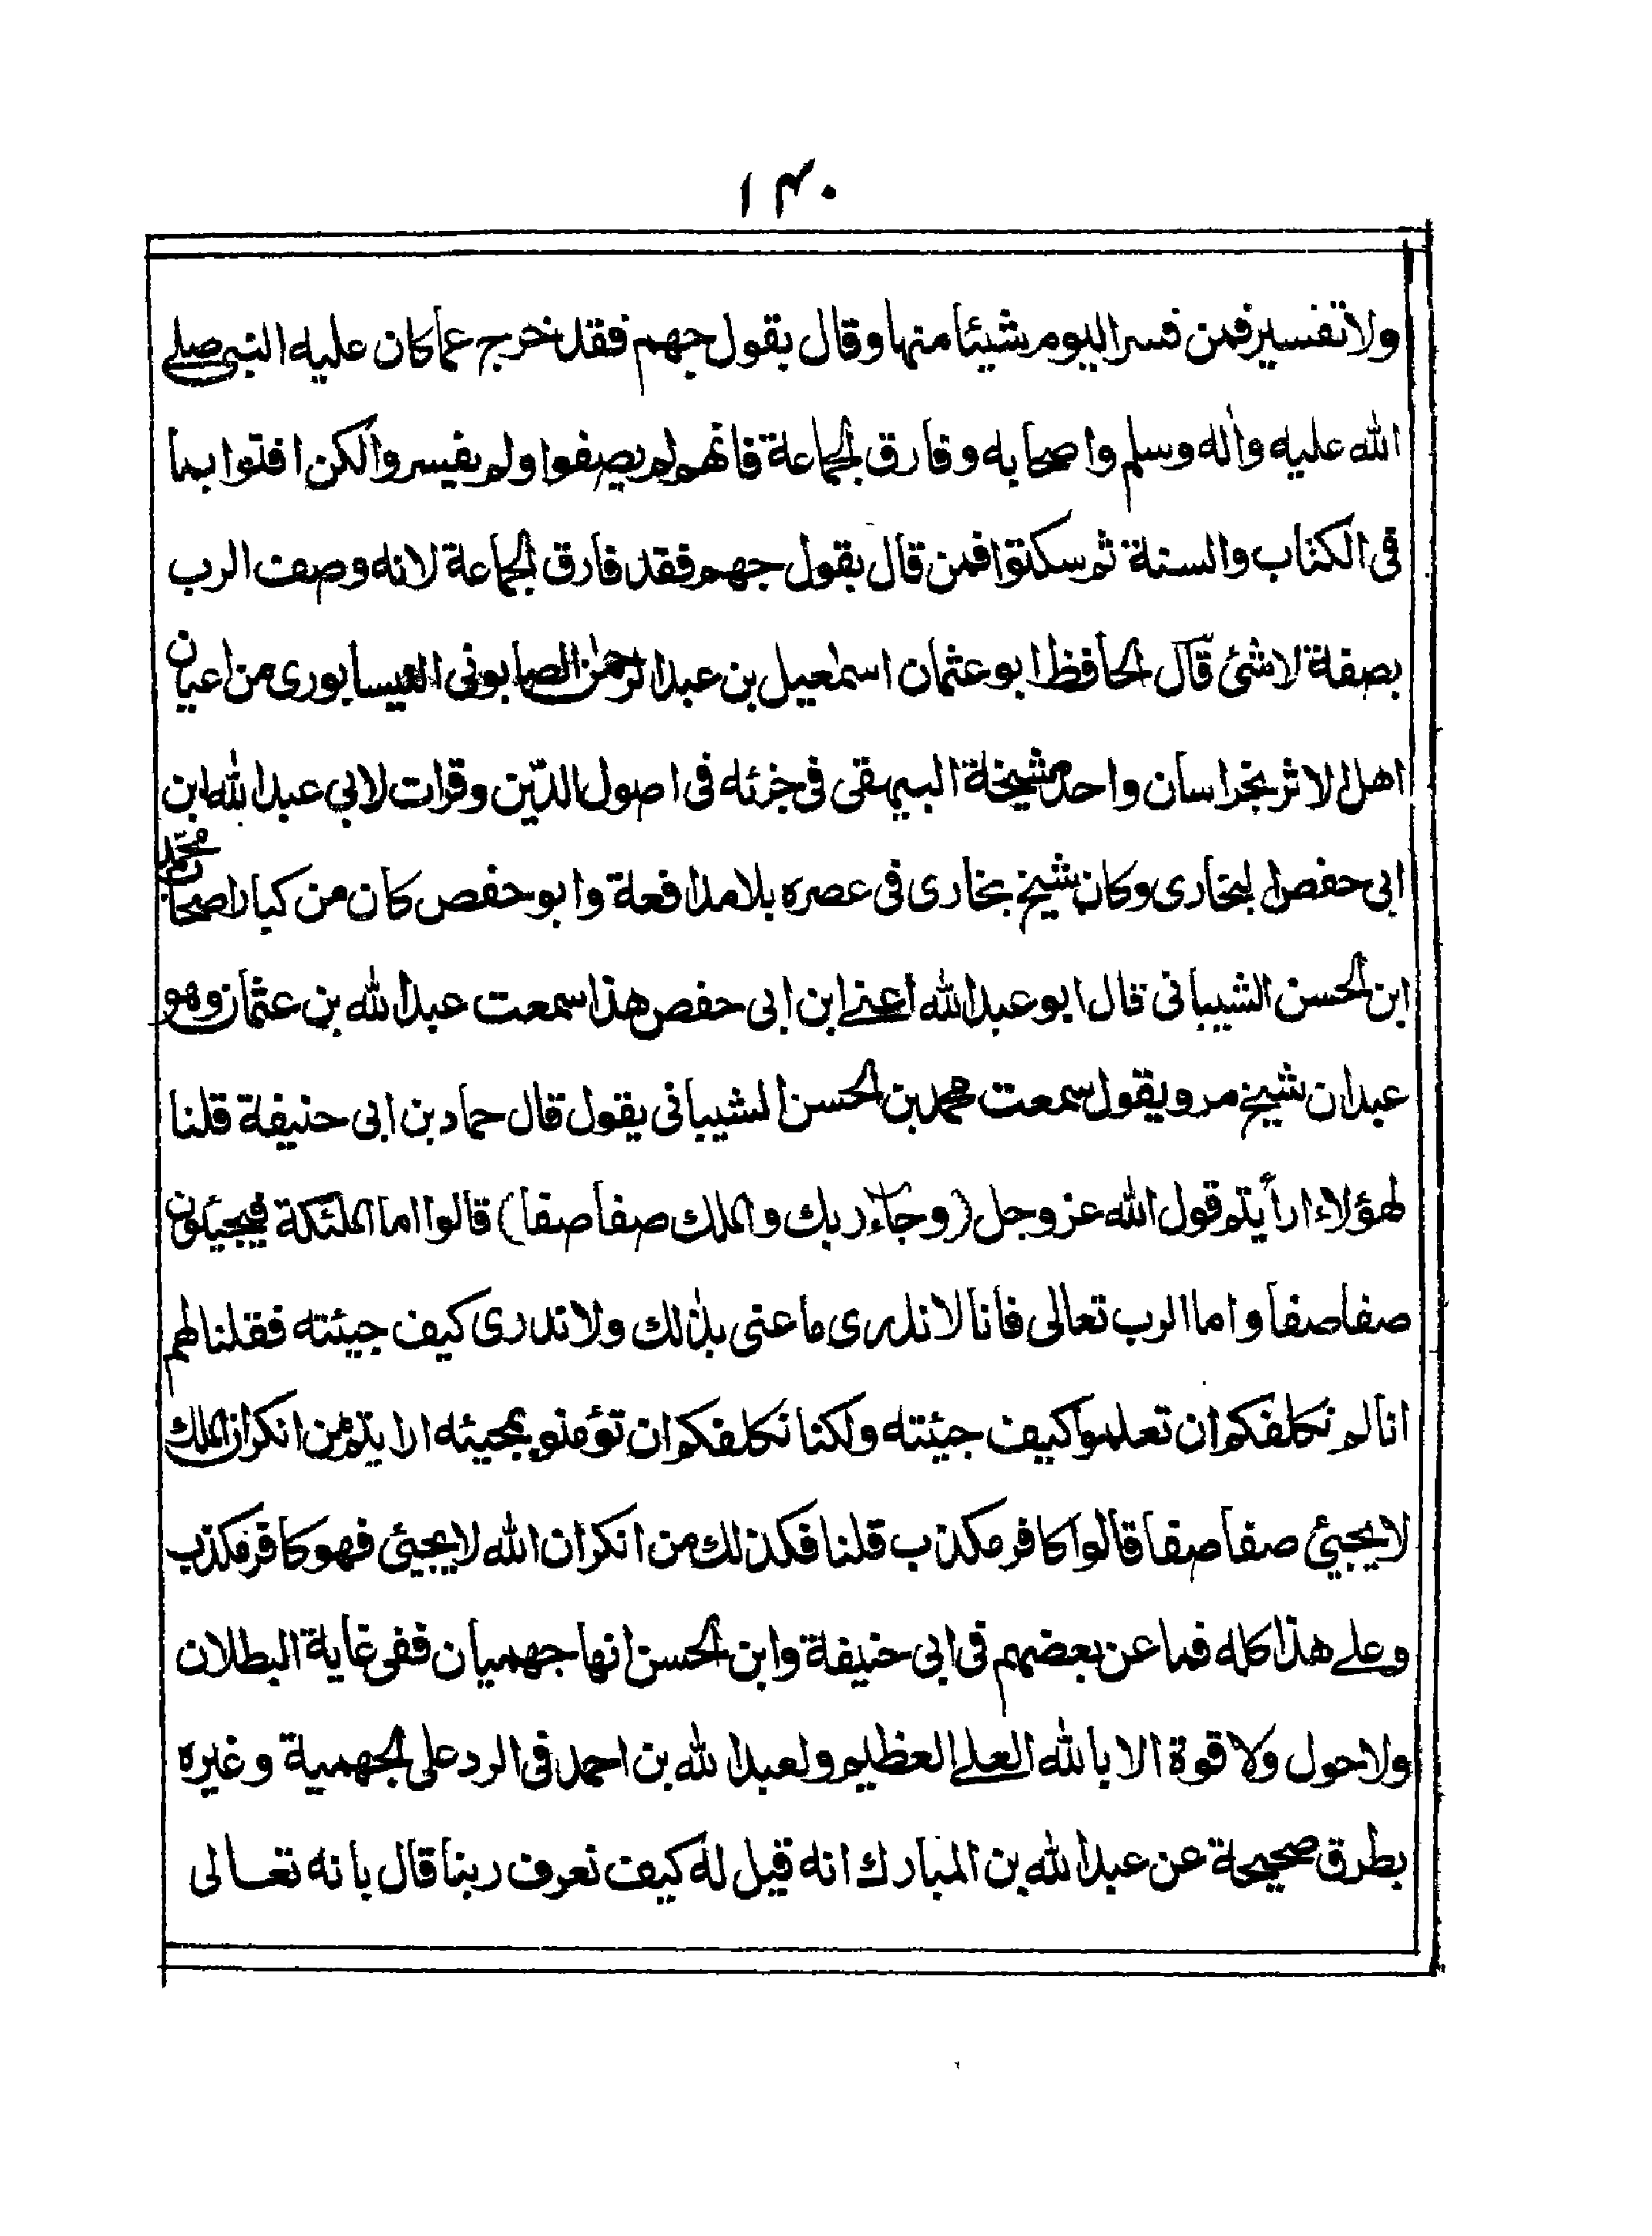 ١٤٠
ولا تفسير فمن فسر اليوم شيئا منها وقال بقول جهم فقد خرج عما كان عليه النبي صلے
الله عليه واله وسلم واصحابه وفارق الجماعة فانهم لم يصفوا ولم يفسروا لكن افتوا بما
فى الكتاب والسنة ثم سكتوا فمن قال بقول جهم فقد فارق الجماعة لانه وصف الرب
بصفة لاشئ قال الحافظ ابو عثمان اسمٰعيل بن عبد الرحمٰن الصابونى النيسابورى من اعيان
اهل الاثر بخراسان واحد مشيخة البيهقى فى جزئه فى اصول الدّين وقرات لابي عبد الله ابن
ابى حفص البخارى وكان شيخ بخارى فى عصره بلا مدافعة وابو حفص كان من كبار اصحاب محمّد
ابن الحسن الشيبانى قال ابو عبد الله اعنے ابن ابى حفص هذا سمعت عبد الله بن عثمان وهو
عبدان شيخ مرو يقول سمعت محمد بن الحسن الشيبانى يقول قال حماد بن ابى حنيفة قلنا
لهؤلاء ارأيتم قول الله عز وجل (وجاء ربك والملك صفا صفا) قالوا اما الملئكة فيجيئون
صفا صفا واما الرب تعالى فانا لا ندرى ما عنى بذٰلك ولا ندرى كيف جيئته فقلنا لهم
انا لم نكلفكم ان تعلموا كيف جيئته ولكنا نكلفكم ان تؤمنو بمجيئه ارايتم من انكر ان الملك
لا يجيئ صفا صفا قالوا كافر مكذب قلنا فكذلك من انكر ان الله لا يجيئ فهو كافر مكذب
وعلے هذا كله فما عن بعضهم فى ابى حنيفة وابن الحسن انها جهميان ففى غاية البطلان
ولا حول ولا قوة الا بالله العلے العظيم ولعبد الله بن احمد فى الرد على الجهمية وغيره
بطرق صحيحة عن عبد الله بن المبارك انه قيل له كيف نعرف ربنا قال بانه تعالى